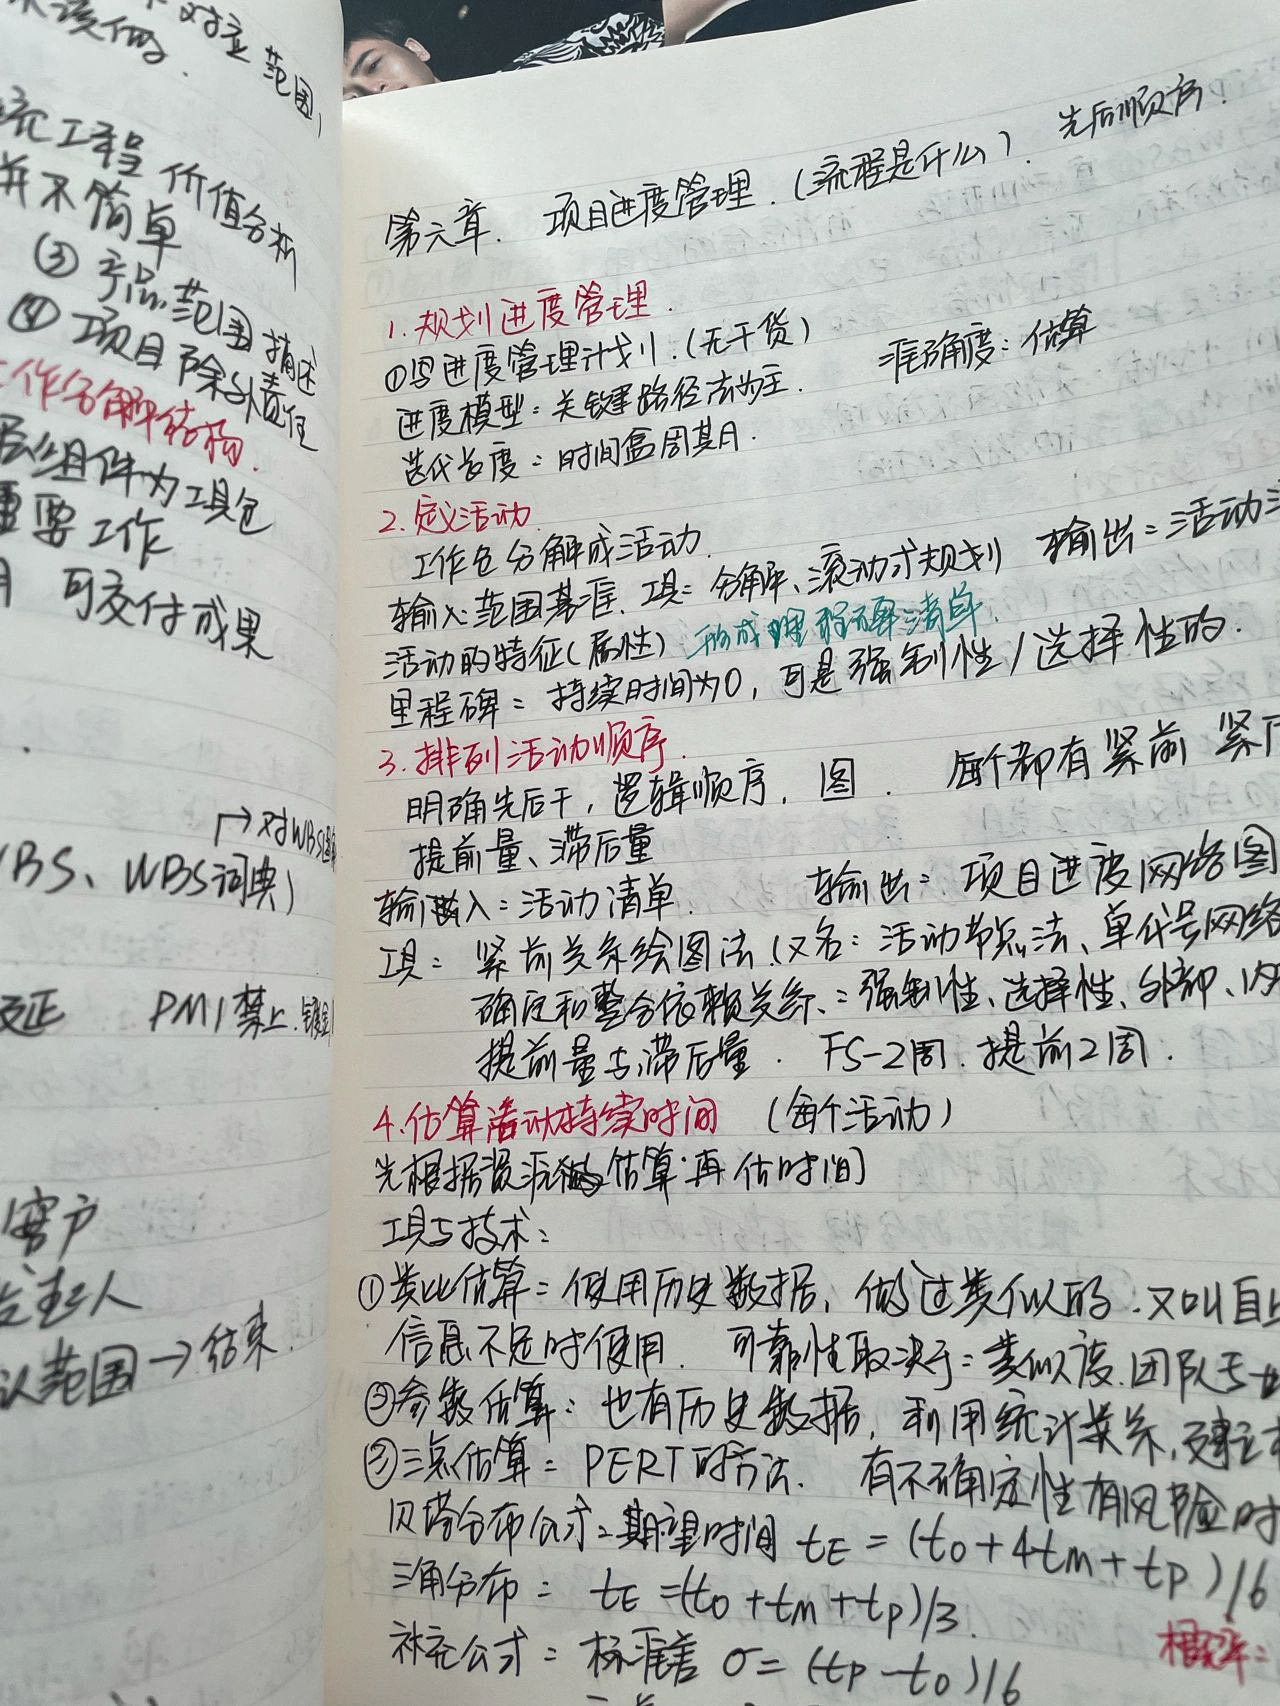 对应范围
该做.
工程 价值分析
并不简单
③ 产品范围描述
④ 项目除外责任
工作分解结构.
层组件为工具包
重要工作
可交付成果
→对WBS
WBS、WBS词典)
延 PMI禁止.镀金
客户
发起人
认范围→结束.
第六章. 项目进度管理.(流程是什么). 先后顺序.
1.规划进度管理.
①写进度管理计划.(无干货) 准确度:估算
进度模型:关键路径法为主.
迭代长度:时间盒周期.
2.定义活动.
工作包分解成活动.
输入:范围基准. 工具:分解、滚动式规划 输出:活动
活动的特征(属性) 形成里程碑清单.
里程碑:持续时间为0,可是强制性/选择性的.
3.排列活动顺序.
明确先后干,逻辑顺序,图. 每个都有紧前 紧
提前量、滞后量
输入:活动清单. 输出:项目进度网络图
工具: 紧前关系绘图法(又名:活动节点法、单代号网络
确定和整合依赖关系:强制性、选择性、外部、内
提前量与滞后量. FS-2周.提前2周.
4.估算活动持续时间 (每个活动)
先根据资源估算.再估时间
工具与技术:
①类比估算:使用历史数据,做过类似的.又叫自上
信息不足时使用. 可靠性取决于:类似度.团队专业
②参数估算:也有历史数据,利用统计关系,建立
③三点估算:PERT的方法. 有不确定性有风险时
贝塔分布公式:期望时间 tE = (to+4tm+tp)/6
三角分布: tE=(to+tm+tp)/3.
补充公式:标准差 σ=(tp-to)/6
概率: